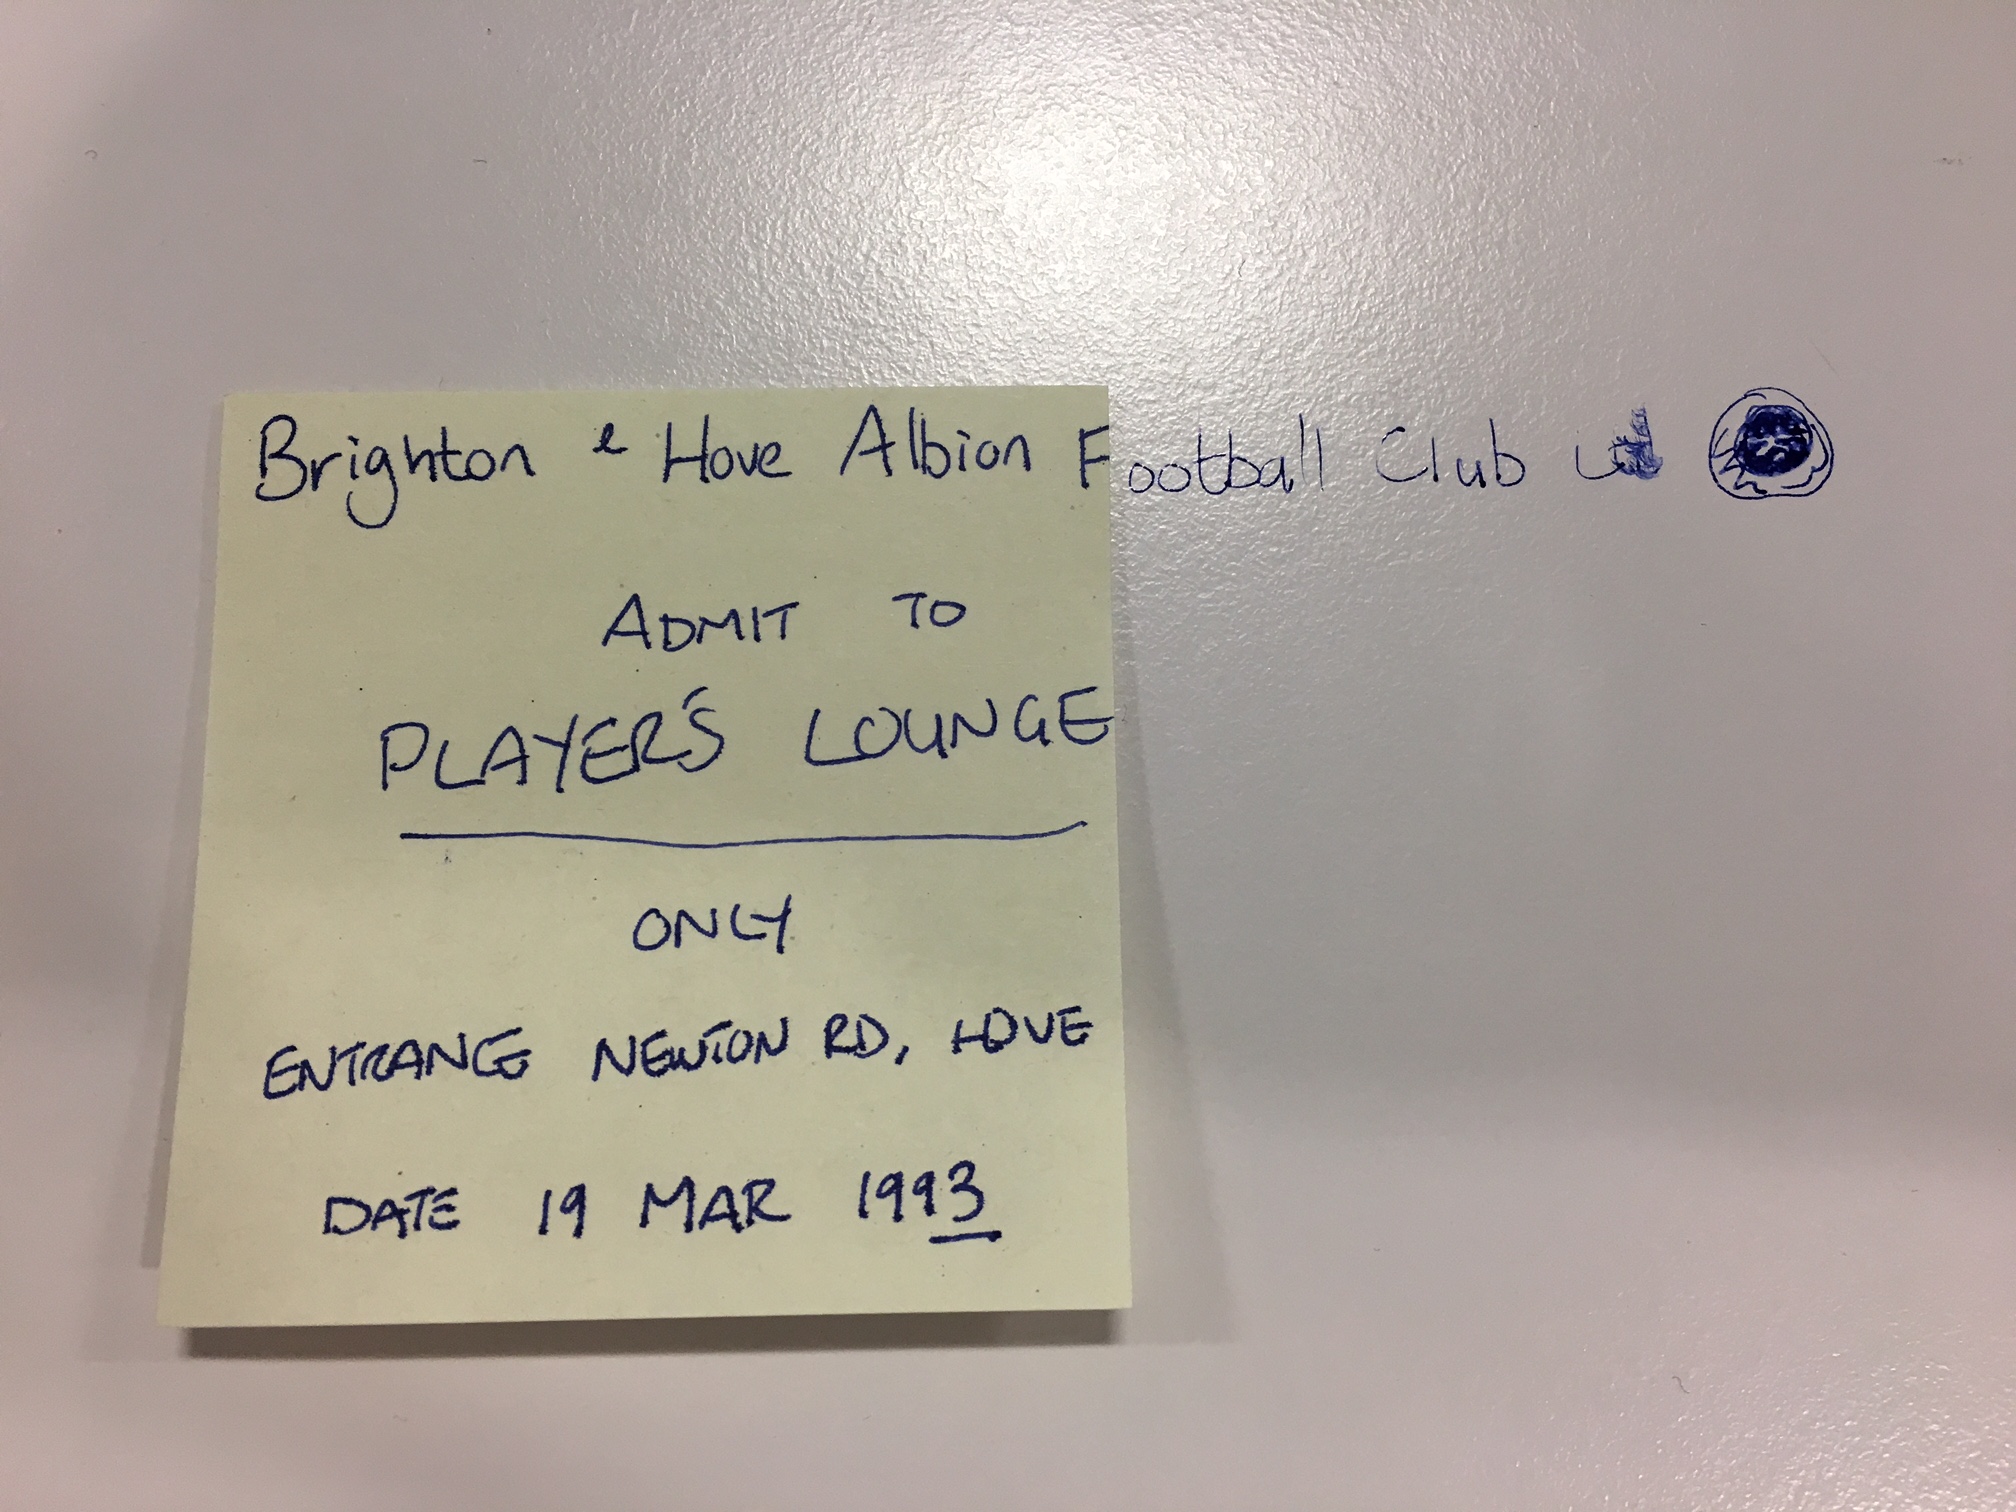 Brighton & Hove Albion Football Club
ADMIT TO
PLAYER'S LOUNGE
ONLY
ENTRANCE NEWTON RD, HOVE
DATE 19 MAR 1993